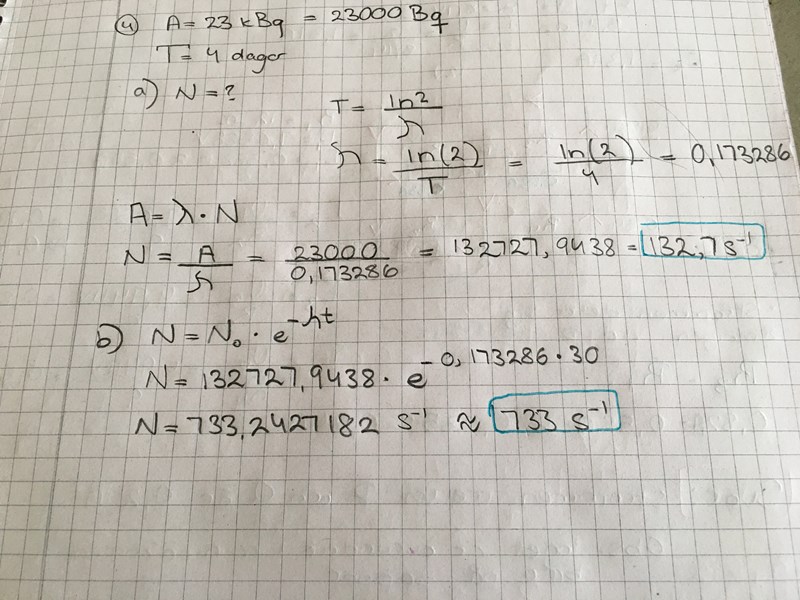 4) A = 23 kBq = 23000 Bq
T = 4 dagar
a) N = ?
T = ln2/λ
λ = ln(2)/T = ln(2)/4 = 0,173286
A = λ · N
N = A/λ = 23000/0,173286 = 132727,9438 = 132,7 s⁻¹
b) N = N₀ · e^-λt
N = 132727,9438 · e^-0,173286·30
N = 733,2427182 s⁻¹ ≈ 733 s⁻¹